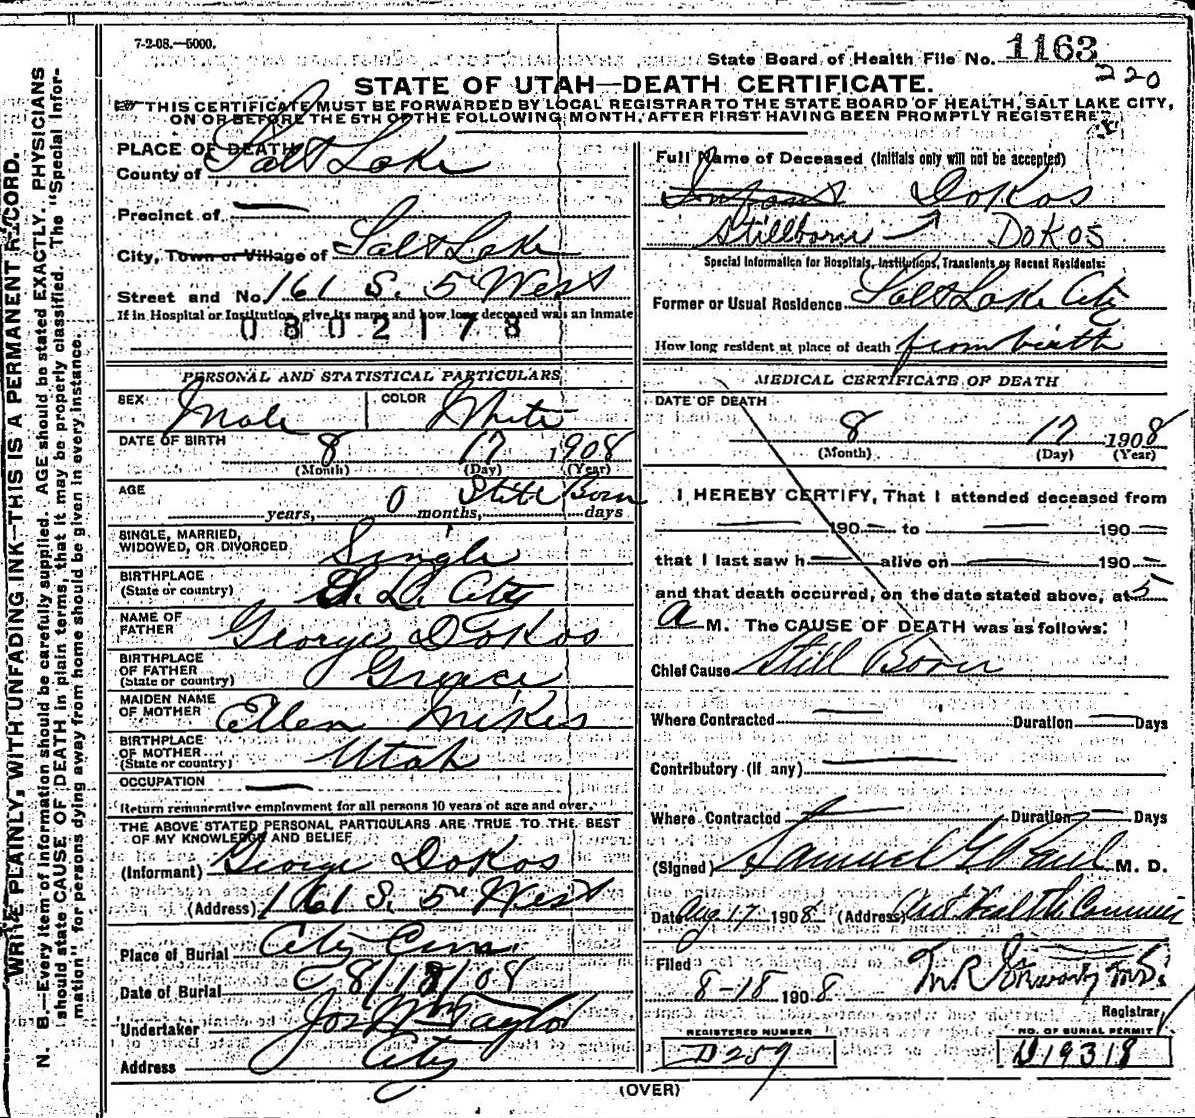 7-2-08.—5000.
State Board of Health File No. 1163
220
STATE OF UTAH—DEATH CERTIFICATE.
THIS CERTIFICATE MUST BE FORWARDED BY LOCAL REGISTRAR TO THE STATE BOARD OF HEALTH, SALT LAKE CITY,
ON OR BEFORE THE 5TH OF THE FOLLOWING MONTH, AFTER FIRST HAVING BEEN PROMPTLY REGISTERED
PLACE OF DEATH
County of Salt Lake
Precinct of —
City, Town or Village of Salt Lake
Street and No. 161 S. 5 West
If in Hospital or Institution, give its name and how long deceased was an inmate
0802178
PERSONAL AND STATISTICAL PARTICULARS
SEX Male COLOR White
DATE OF BIRTH 8 17 1908
(Month) (Day) (Year)
AGE years, 0 months, Still Born days
SINGLE, MARRIED,
WIDOWED, OR DIVORCED Single
BIRTHPLACE
(State or country) S. L. City
NAME OF
FATHER George Dokos
BIRTHPLACE
OF FATHER
(State or country) Greece
MAIDEN NAME
OF MOTHER Ellen Mikes
BIRTHPLACE
OF MOTHER
(State or country) Utah
OCCUPATION —
Return remunerative employment for all persons 10 years of age and over.
THE ABOVE STATED PERSONAL PARTICULARS ARE TRUE TO THE BEST
OF MY KNOWLEDGE AND BELIEF
(Informant) George Dokos
(Address) 161 S. 5 West
Place of Burial City Cem.
Date of Burial 8/18/08
Undertaker Jos Wm Taylor
Address City
Full Name of Deceased (Initials only will not be accepted)
Infant Dokos
Stillborn DOKOS
Special Information for Hospitals, Institutions, Transients or Recent Residents:
Former or Usual Residence Salt Lake City
How long resident at place of death from birth
MEDICAL CERTIFICATE OF DEATH
DATE OF DEATH
8 17 1908
(Month) (Day) (Year)
I HEREBY CERTIFY, That I attended deceased from
— 190— to — 190—
that I last saw h— alive on — 190—
and that death occurred, on the date stated above, at 5
A M. The CAUSE OF DEATH was as follows:
Chief Cause Still Born
Where Contracted — Duration — Days
Contributory (if any) —
Where Contracted — Duration — Days
(Signed) Samuel G Paul M. D.
Date Aug 17 1908 (Address) Health
Filed
8-18 1908
Registrar
REGISTERED NUMBER
D259
NO. OF BURIAL PERMIT
D19318
(OVER)
WRITE PLAINLY, WITH UNFADING INK—THIS IS A PERMANENT RECORD.
N. B.—Every item of information should be carefully supplied. AGE should be stated EXACTLY. PHYSICIANS
should state CAUSE OF DEATH in plain terms, that it may be properly classified. The "Special Infor-
mation" for persons dying away from home should be given in every instance.